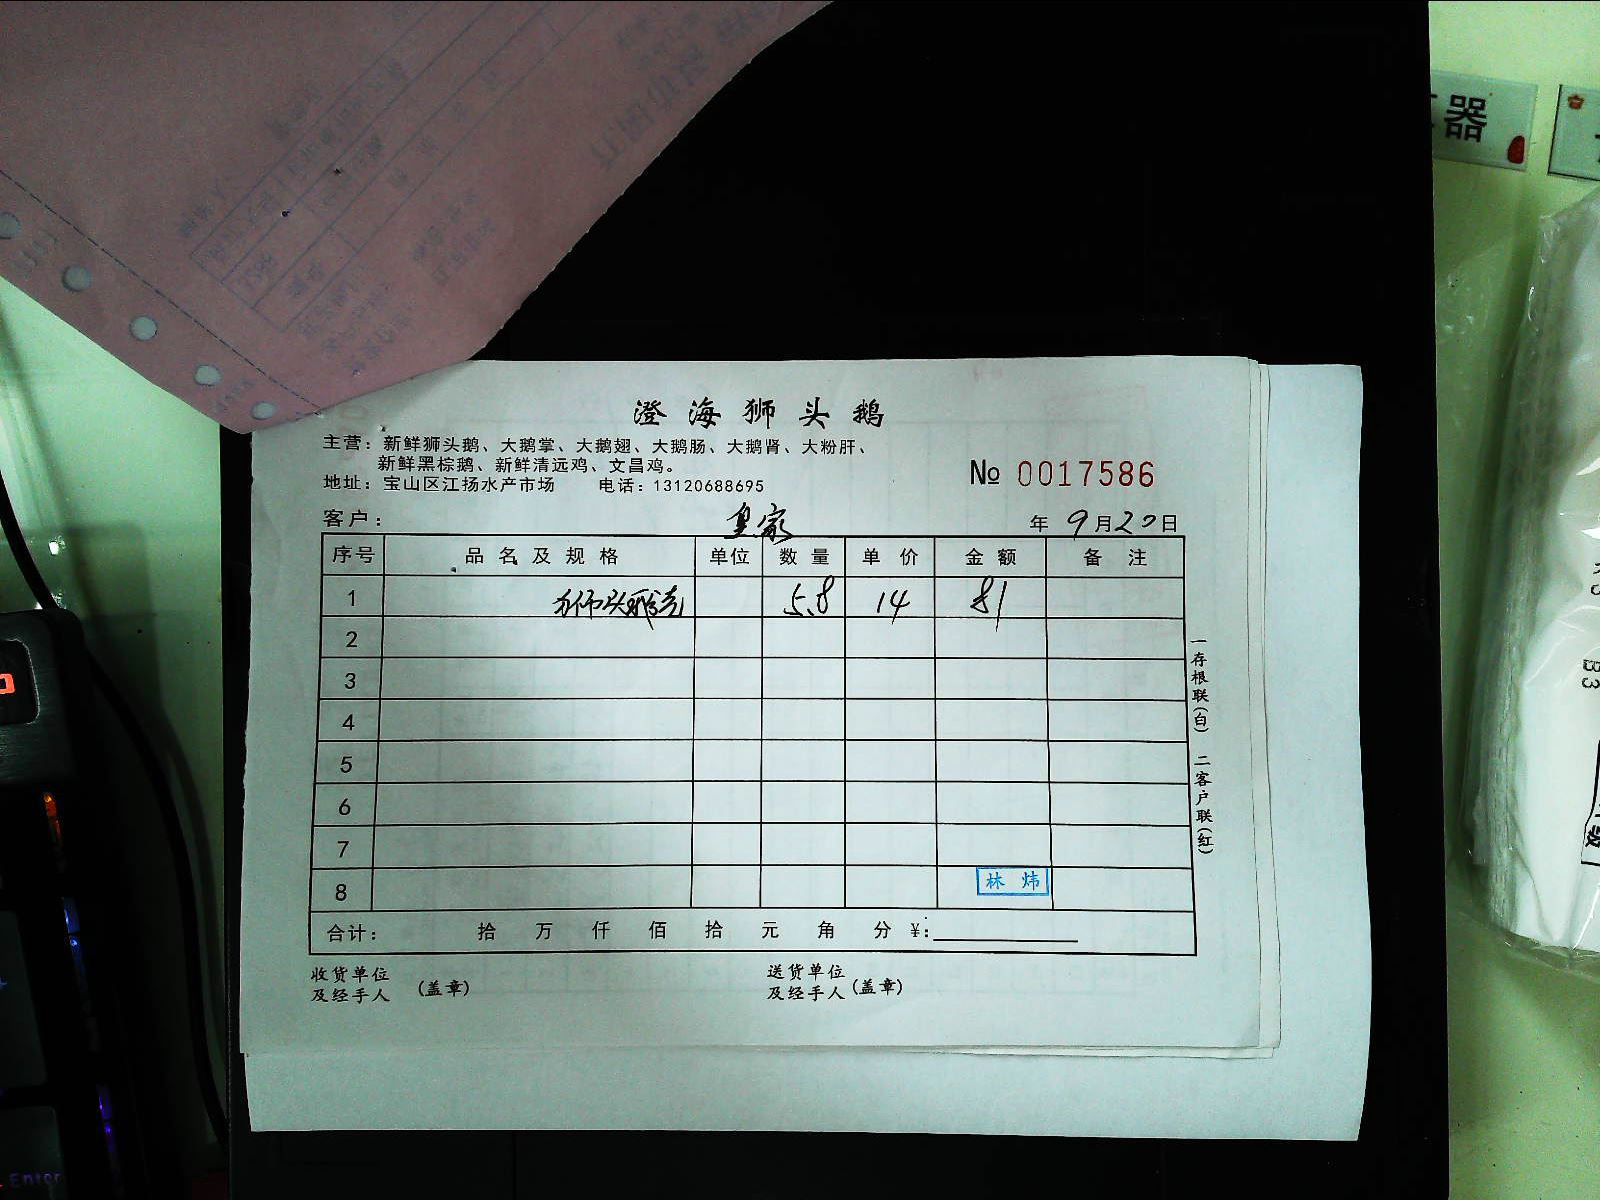 器
澄海狮头鹅
主营：新鲜狮头鹅、大鹅掌、大鹅翅、大鹅肠、大鹅肾、大粉肝、
新鲜黑棕鹅、新鲜清远鸡、文昌鸡。
地址：宝山区江扬水产市场 电话：13120688695
№ 0017586
客户：皇家 年9月20日
序号 品名及规格 单位 数量 单价 金额 备注
1 狮头鹅壳 5.8 14 81
2
3
4
5
6
7
8 林炜
合计： 拾 万 仟 佰 拾 元 角 分 ¥:
收货单位
及经手人 (盖章)
送货单位
及经手人 (盖章)
一存根联(白) 二客户联(红)
B3
Enter